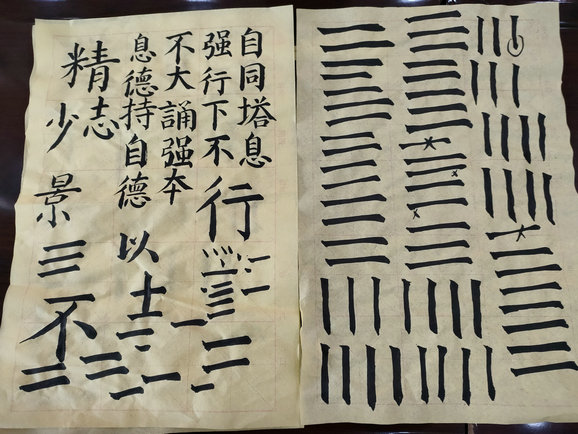 自同塔息
强行下不行
不大誦强夲
息德持自德以士
精志
少景三不